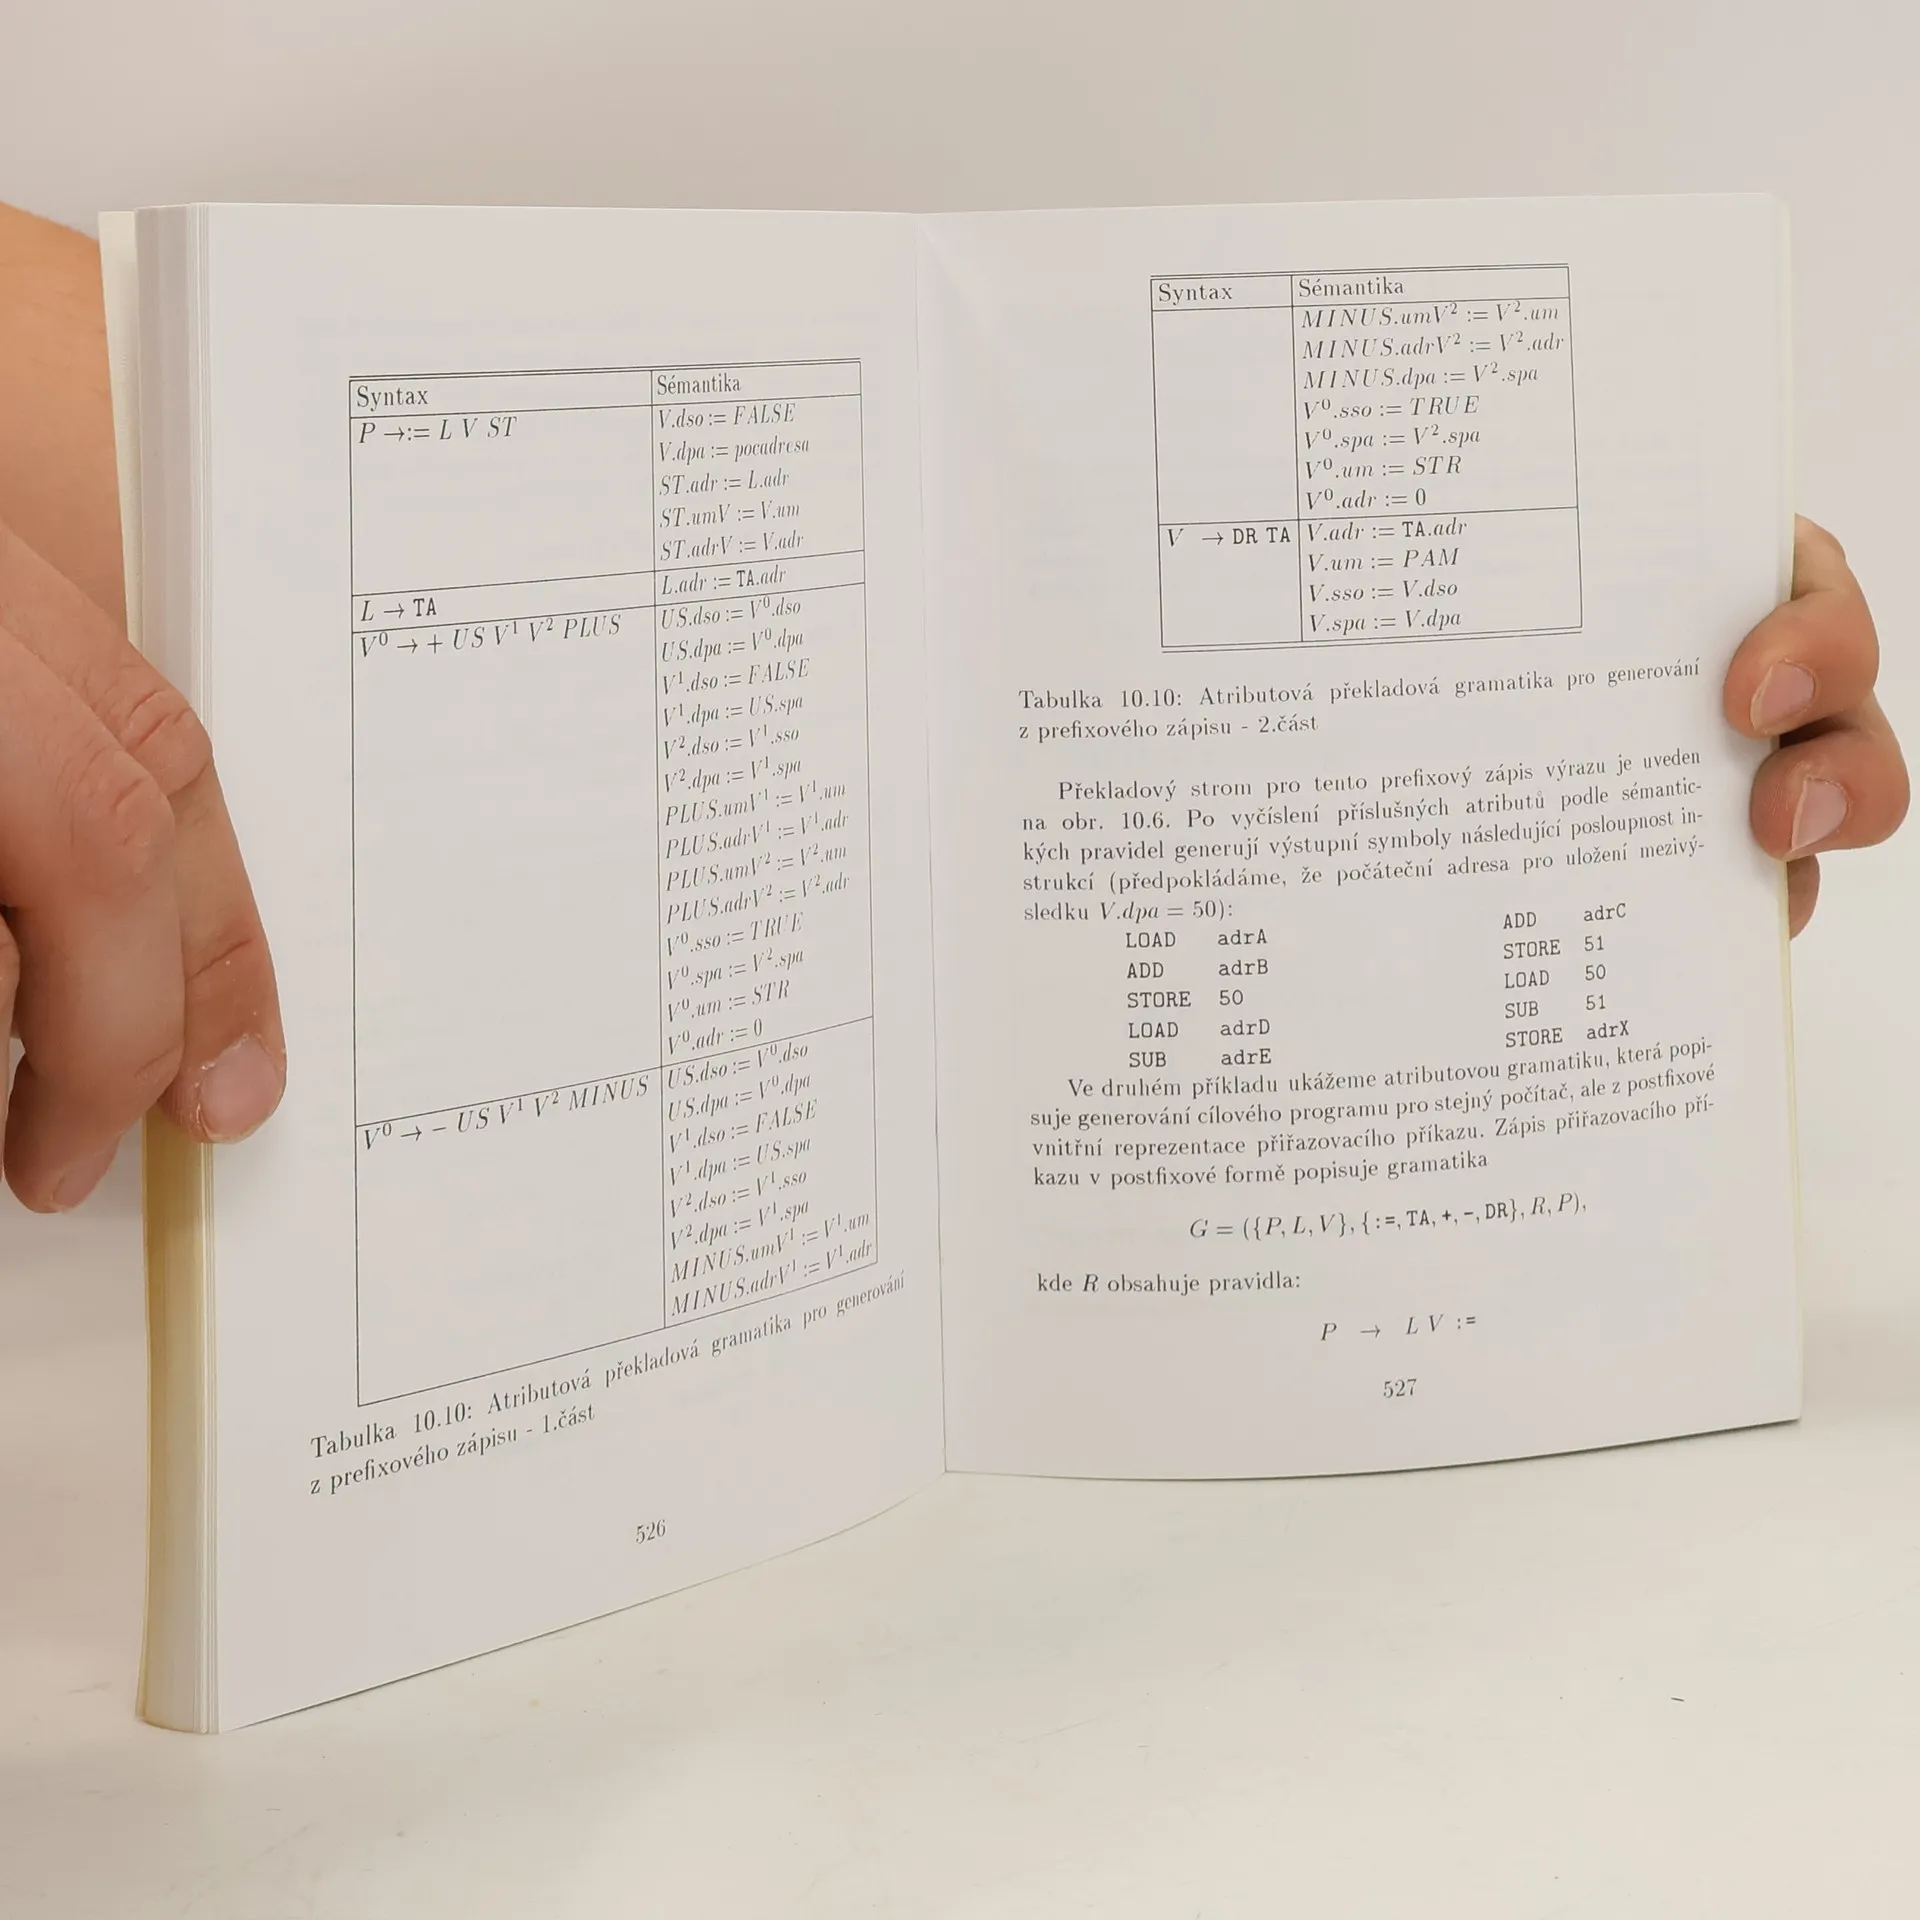 Syntax Sémantika
P →:= L V ST V.dso := FALSE
V.dpa := pocadresa
ST.adr := L.adr
ST.umV := V.um
ST.adrV := V.adr
L → TA L.adr := TA.adr
V⁰ → + US V¹ V² PLUS US.dso := V⁰.dso
US.dpa := V⁰.dpa
V¹.dso := FALSE
V¹.dpa := US.spa
V².dso := V¹.sso
V².dpa := V¹.spa
PLUS.umV¹ := V¹.um
PLUS.adrV¹ := V¹.adr
PLUS.umV² := V².um
PLUS.adrV² := V².adr
V⁰.sso := TRUE
V⁰.spa := V².spa
V⁰.um := STR
V⁰.adr := 0
V⁰ → − US V¹ V² MINUS US.dso := V⁰.dso
US.dpa := V⁰.dpa
V¹.dso := FALSE
V¹.dpa := US.spa
V².dso := V¹.sso
V².dpa := V¹.spa
MINUS.umV¹ := V¹.um
MINUS.adrV¹ := V¹.adr
Tabulka 10.10: Atributová překladová gramatika pro generování
z prefixového zápisu - 1.část
526
Syntax Sémantika
MINUS.umV² := V².um
MINUS.adrV² := V².adr
MINUS.dpa := V².spa
V⁰.sso := TRUE
V⁰.spa := V².spa
V⁰.um := STR
V⁰.adr := 0
V → DR TA V.adr := TA.adr
V.um := PAM
V.sso := V.dso
V.spa := V.dpa
Tabulka 10.10: Atributová překladová gramatika pro generování
z prefixového zápisu - 2.část
Překladový strom pro tento prefixový zápis výrazu je uveden
na obr. 10.6. Po vyčíslení příslušných atributů podle sémantic-
kých pravidel generují výstupní symboly následující posloupnost in-
strukcí (předpokládáme, že počáteční adresa pro uložení mezivý-
sledku V.dpa = 50):
LOAD adrA ADD adrC
ADD adrB STORE 51
STORE 50 LOAD 50
LOAD adrD SUB 51
SUB adrE STORE adrX
Ve druhém příkladu ukážeme atributovou gramatiku, která popi-
suje generování cílového programu pro stejný počítač, ale z postfixové
vnitřní reprezentace přiřazovacího příkazu. Zápis přiřazovacího pří-
kazu v postfixové formě popisuje gramatika
G = ({P, L, V}, {:=, TA, +, -, DR}, R, P),
kde R obsahuje pravidla:
P → L V :=
527